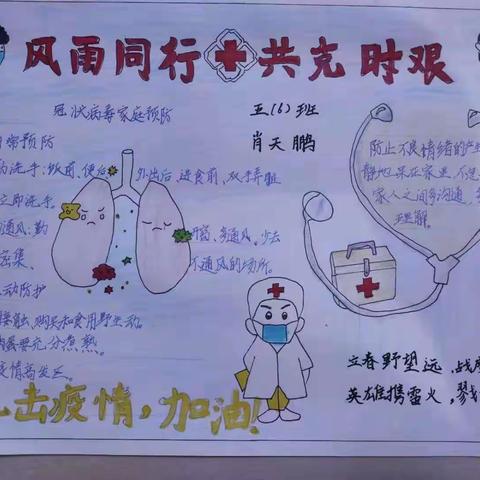 风雨同行 共克时艰
冠状病毒家庭预防
五(6)班
肖天鹏
日常预防
洗手:饭前、便后、外出后、进食前、双手弄脏
立即洗手。
通风:勤开窗、多通风、少去
密集、不通风的场所。
动防护
接触、购买和食用野生动
蛋要充分煮熟。
防止不良情绪的产
家人之间多沟通,
理解。
立春野望远,战
英雄携雷火,
击疫情,加油!